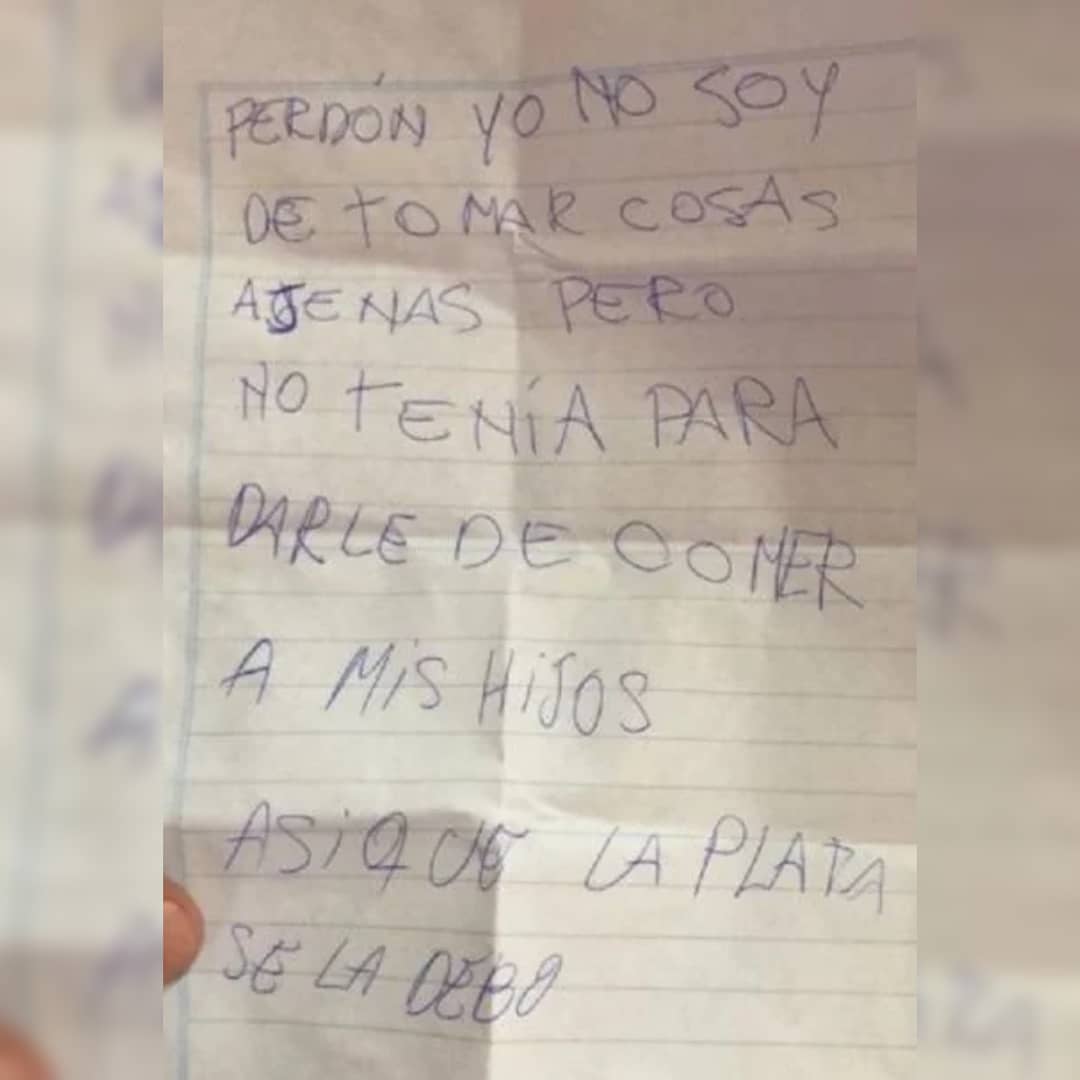 PERDÓN YO NO SOY
DE TOMAR COSAS
AJENAS PERO
NO TENÍA PARA
DARLE DE COMER
A MIS HIJOS
ASI QUE LA PLATA
SE LA DEBO